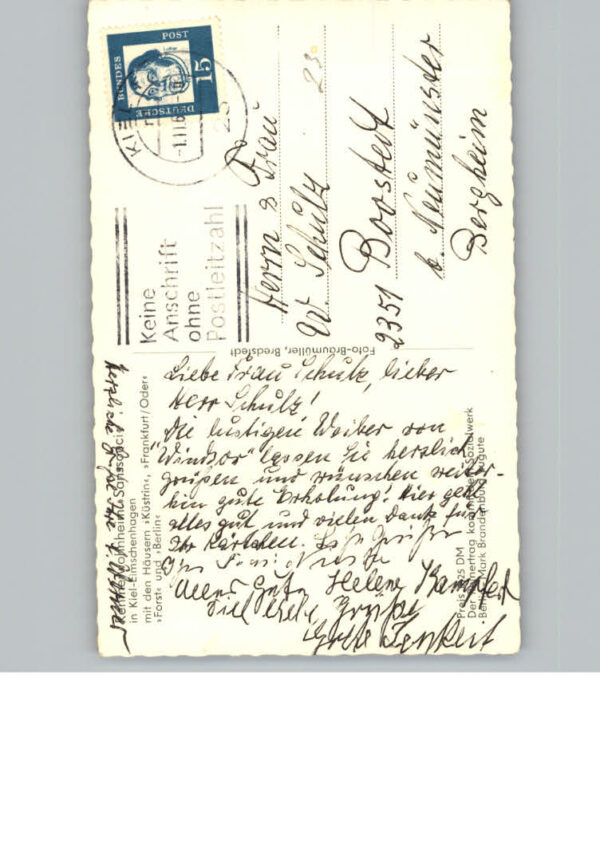 DEUTSCHE
BUNDES
POST
15
KIEL
-1.11.6
23
Keine
Anschrift
ohne
Postleitzahl
Herrn & Frau
W. Schulz
23
2351 Boostedt
b. Neumünster
Bergheim
Foto-Braumüller, Bredstedt
Liebe Frau Schulz, lieber
Herr Schulz!
Die lustigen Weiber von
"Windsor" lassen Sie herzlich
grüßen und wünschen weiter-
hin gute Erholung! Hier geht
alles gut und vielen Dank für
Ihr Kärtchen. Es grüßen
Alles Gute Helene Kampfert
Viel liebe Grüße
Grete
in Kiel-Elmschenhagen
mit den Häusern »Küstrin«, »Frankfurt/Oder«
»Forst« und »Berlin«
Preis 0,25 DM
Der Reinertrag kommt dem Sozialwerk
Berlin-Mark Brandenburg zugute